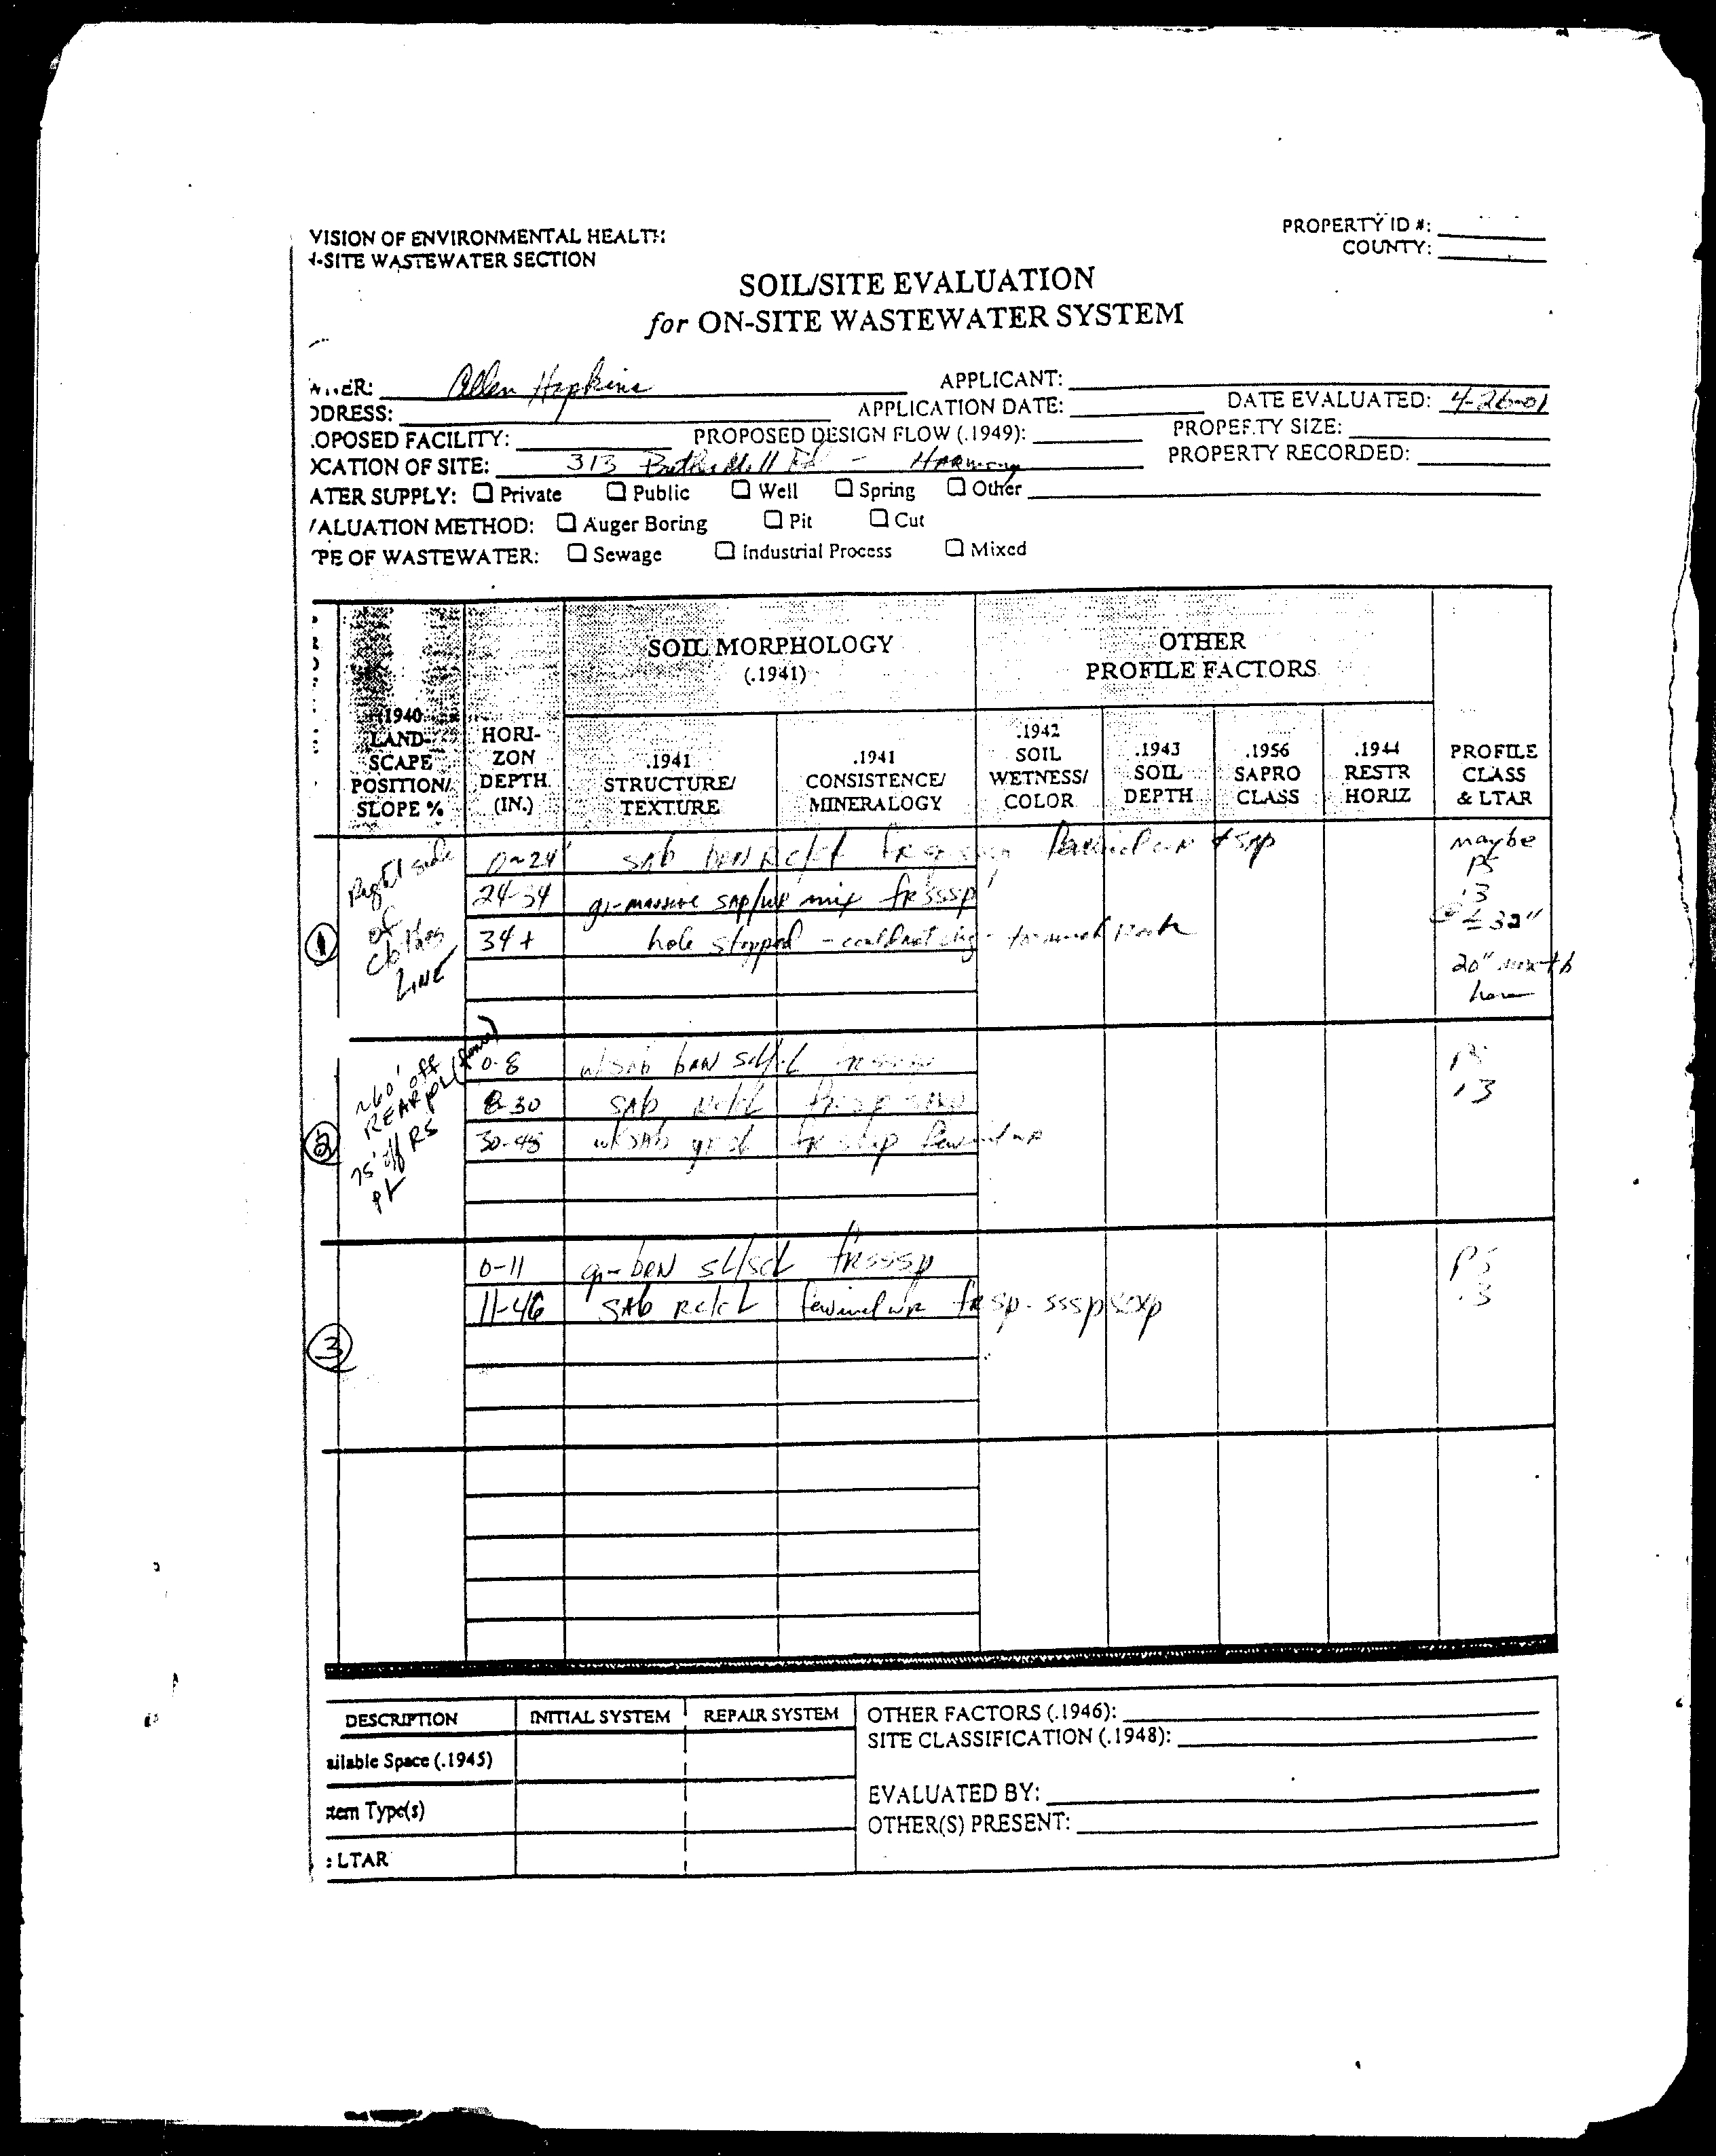 VISION OF ENVIRONMENTAL HEALTH
-SITE WASTEWATER SECTION
PROPERTY ID #:
COUNTY:
SOIL/SITE EVALUATION
for ON-SITE WASTEWATER SYSTEM
ER: Allen Hopkins APPLICANT:
DDRESS: APPLICATION DATE: DATE EVALUATED: 4-26-01
OPOSED FACILITY: PROPOSED DESIGN FLOW (.1949): PROPERTY SIZE:
OCATION OF SITE: 313 Rd - Harmony PROPERTY RECORDED:
ATER SUPPLY: ☐ Private ☐ Public ☐ Well ☐ Spring ☐ Other
ALUATION METHOD: ☐ Auger Boring ☐ Pit ☐ Cut
PE OF WASTEWATER: ☐ Sewage ☐ Industrial Process ☐ Mixed
SOIL MORPHOLOGY
(.1941)
OTHER
PROFILE FACTORS
.1940
LAND-
SCAPE
POSITION/
SLOPE %
HORI-
ZON
DEPTH
(IN.)
.1941
STRUCTURE/
TEXTURE
.1941
CONSISTENCE/
MINERALOGY
.1942
SOIL
WETNESS/
COLOR
.1943
SOIL
DEPTH
.1956
SAPRO
CLASS
.1944
RESTR
HORIZ
PROFILE
CLASS
& LTAR
1
Right side
of
clothes
LINE
0-24" SAb
24-34 gr-massive SAp/wr mix frsssp
34+ hole stopped - rock
maybe
PS
.3
@ ± 32"
20"
here
2
~60' off
REAR PL
75' off RS
PL
0-8 w/SAb
8-30 SAb
30-45 w/SAb
PS
.3
3
0-11 gr-brN SL/SCL frsssp
11-46 SAb Rc/cL frsp-sssp
PS
.3
DESCRIPTION INITIAL SYSTEM REPAIR SYSTEM
ailable Space (.1945)
stem Type(s)
LTAR
OTHER FACTORS (.1946):
SITE CLASSIFICATION (.1948):
EVALUATED BY:
OTHER(S) PRESENT: